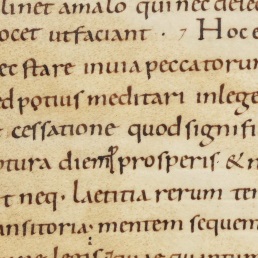 linet amalo qui nec delec
ocet ut faciant · 7 Hoc e
ec stare inuia peccatorum
ed potius meditari inlege
t cessatione quod signifi
ptura diem prosperis & n
t neq· laetitia rerum tem
ansitoria; mentem sequem